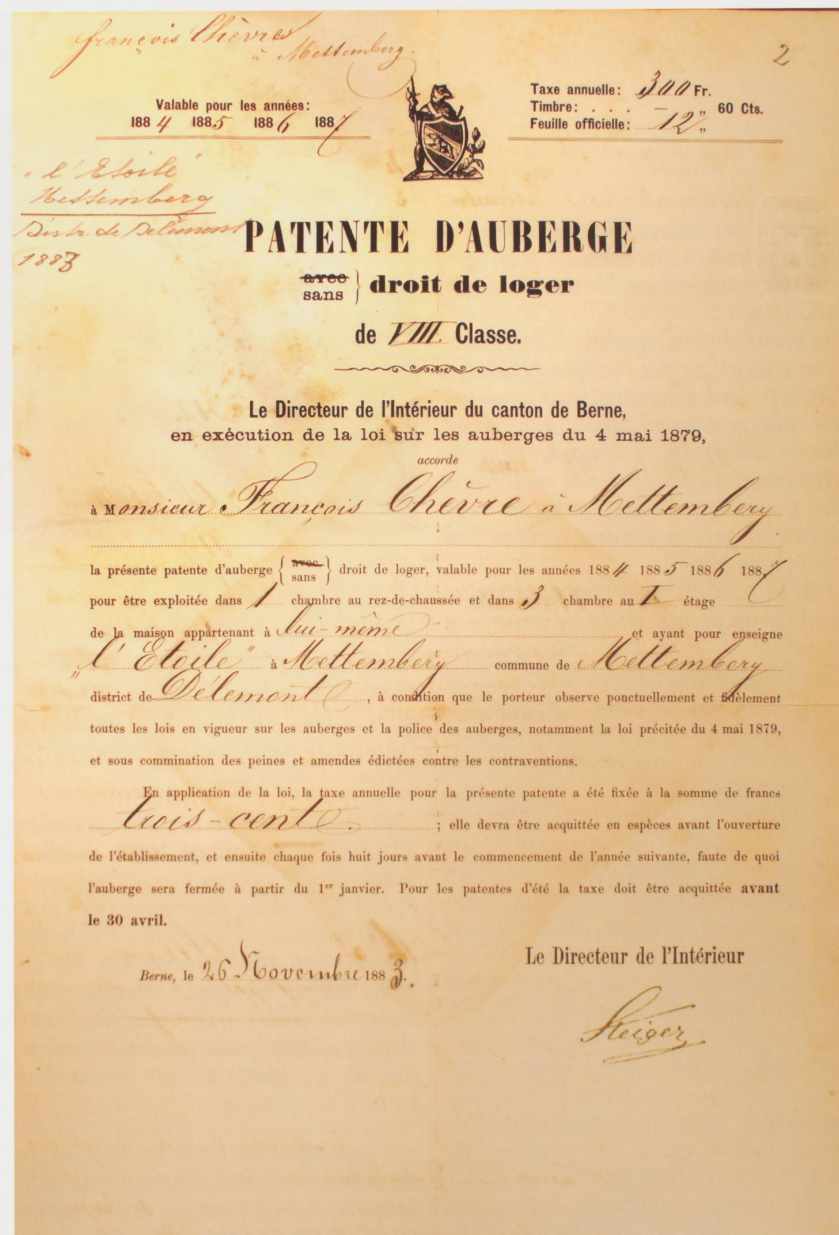 François Chèvre
à Mettemberg.
2
Valable pour les années:
1884 1885 1886 1887
Taxe annuelle: 300 Fr.
Timbre: . . . — „ 60 Cts.
Feuille officielle: 12 „
"l'Etoile"
Mettemberg
Distr. de Delémont
1883
PATENTE D'AUBERGE
avec
sans } droit de loger
de VIII Classe.
Le Directeur de l'Intérieur du canton de Berne,
en exécution de la loi sur les auberges du 4 mai 1879,
accorde
à Monsieur François Chèvre à Mettemberg
la présente patente d'auberge { avec sans } droit de loger, valable pour les années 1884 1885 1886 1887
pour être exploitée dans 1 chambre au rez-de-chaussée et dans 3 chambre au I étage
de la maison appartenant à lui-même et ayant pour enseigne
"l'Etoile" à Mettemberg commune de Mettemberg
district de Délemont, à condition que le porteur observe ponctuellement et fidèlement
toutes les lois en vigueur sur les auberges et la police des auberges, notamment la loi précitée du 4 mai 1879,
et sous commination des peines et amendes édictées contre les contraventions.
En application de la loi, la taxe annuelle pour la présente patente a été fixée à la somme de francs
trois-cent. ; elle devra être acquittée en espèces avant l'ouverture
de l'établissement, et ensuite chaque fois huit jours avant le commencement de l'année suivante, faute de quoi
l'auberge sera fermée à partir du 1er janvier. Pour les patentes d'été la taxe doit être acquittée avant
le 30 avril.
Berne, le 26 Novembre 1883.
Le Directeur de l'Intérieur
Steiger